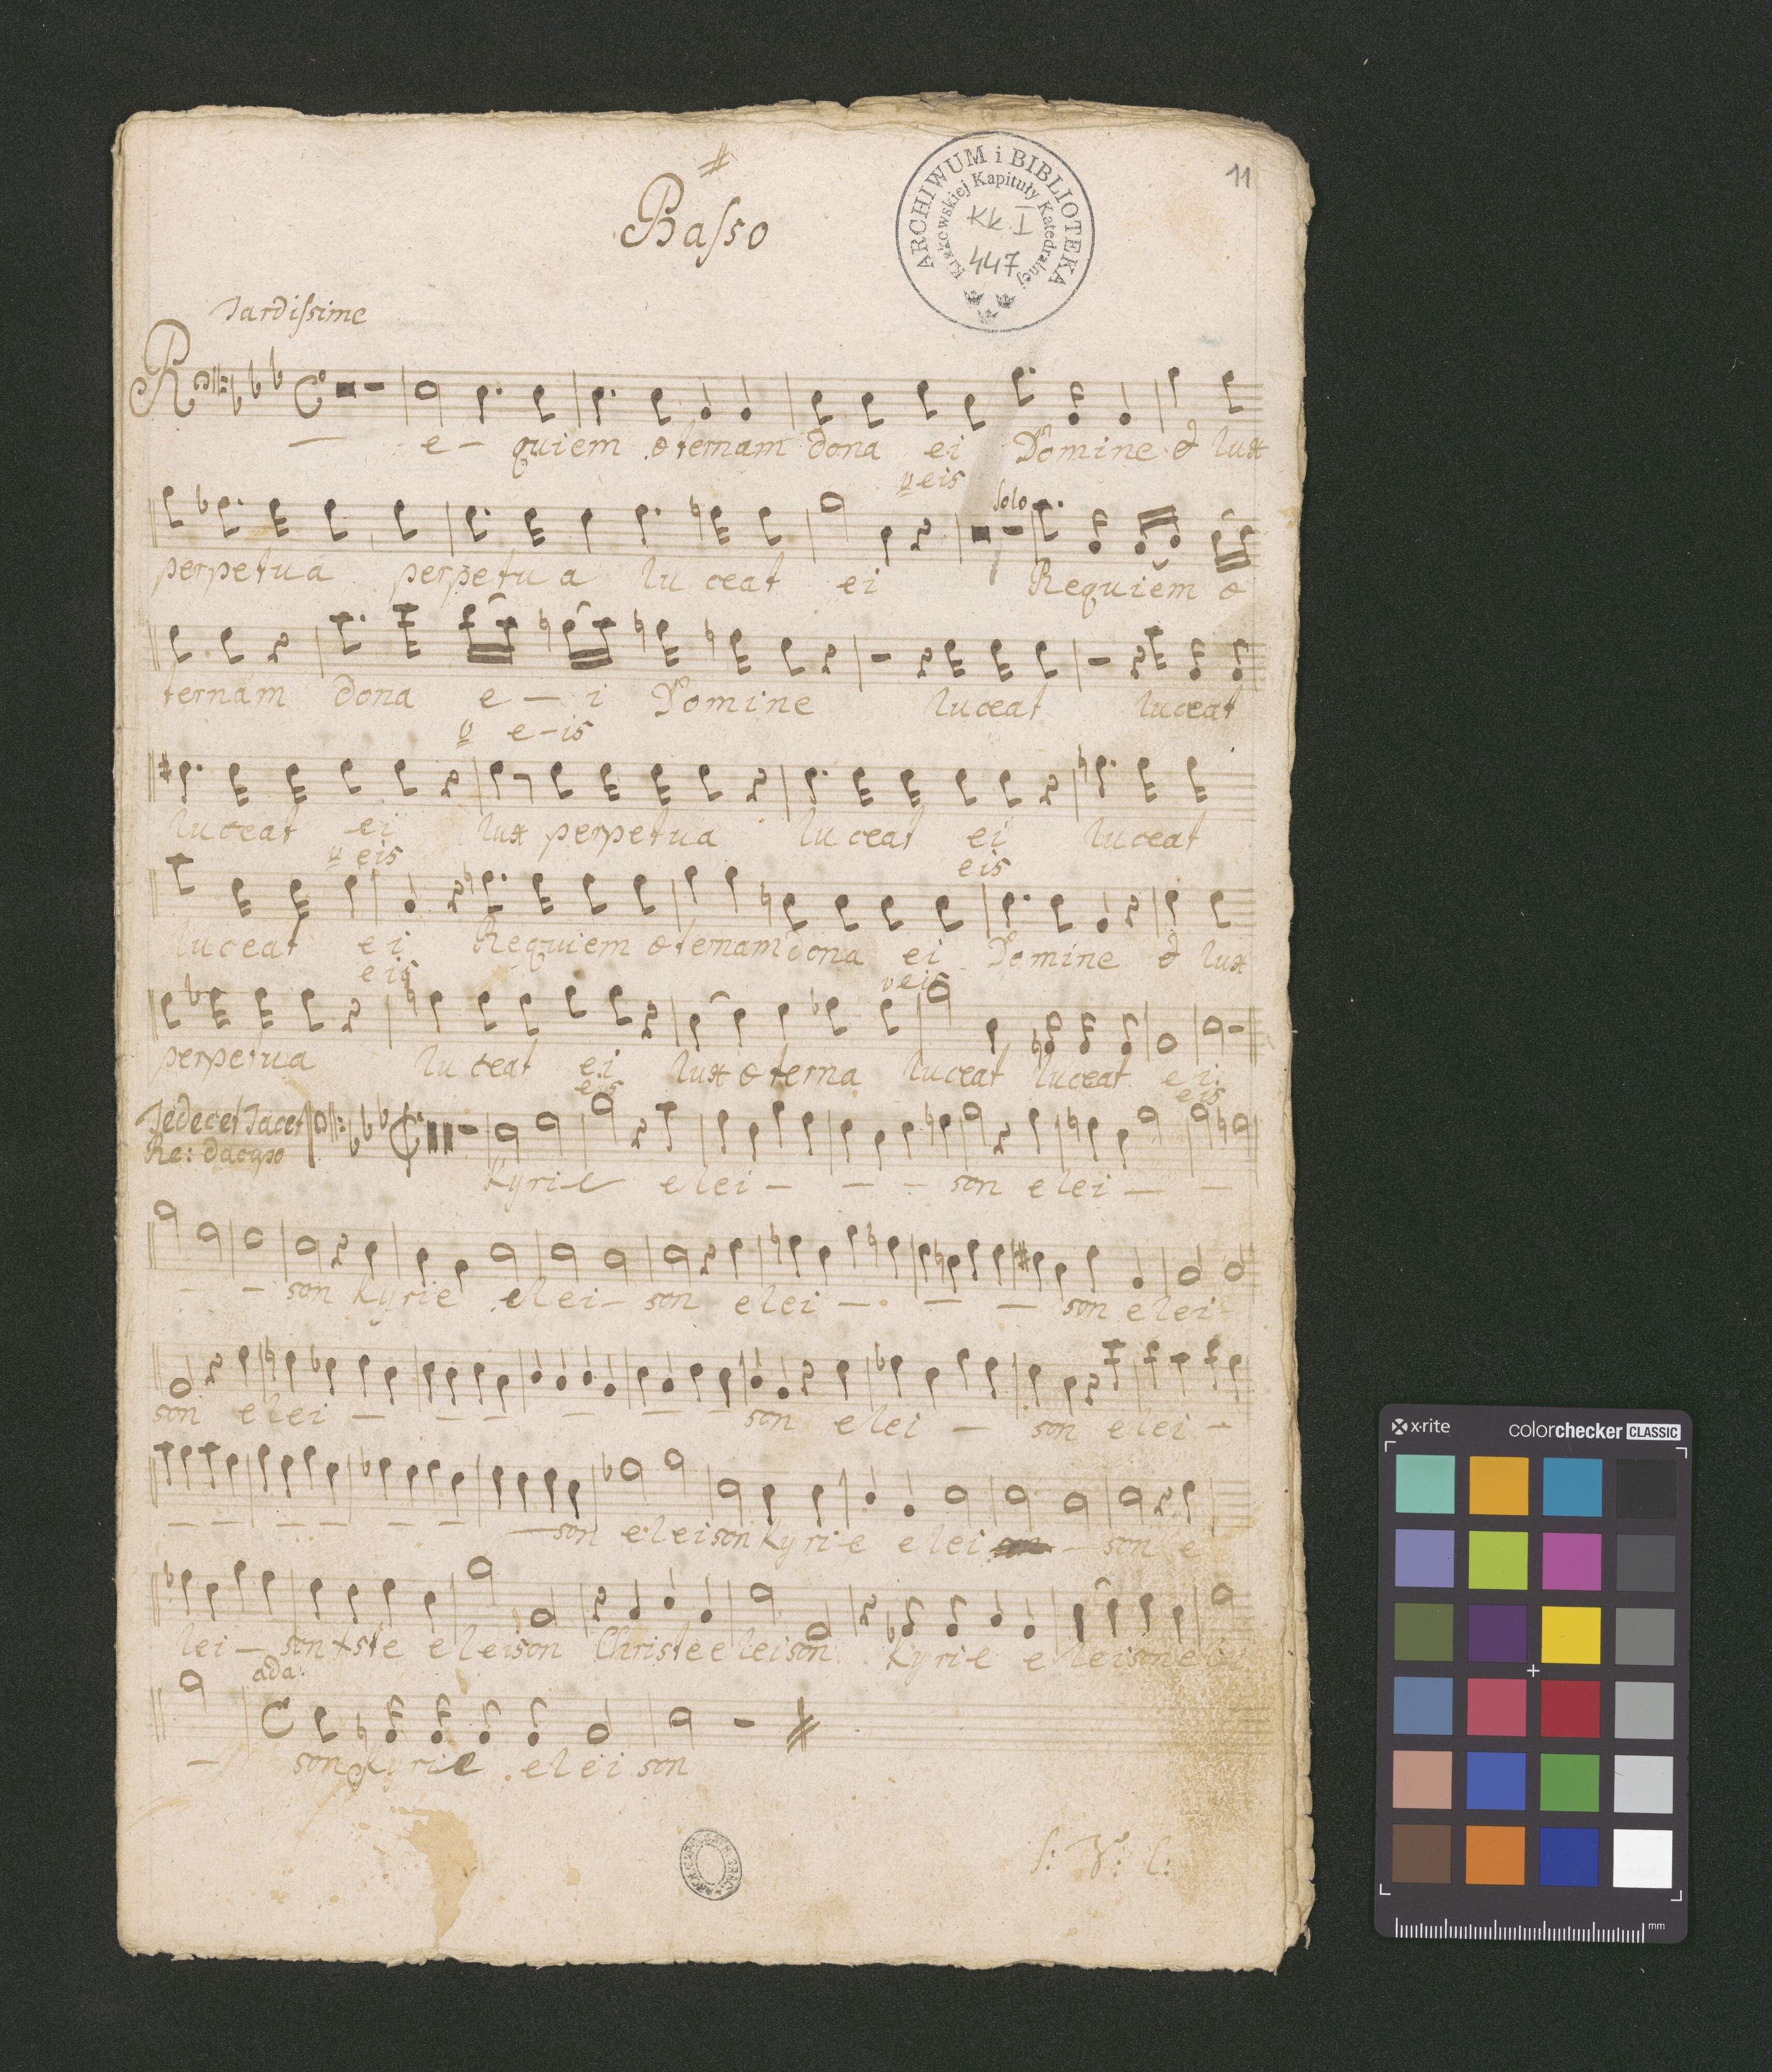 11
Basso
ARCHIWUM i BIBLIOTEKA
Krakowskiej Kapituły Katedralnej
Kk I
447
Tardissime
R e - quiem æternam dona ei Domine & lux
v eis
Solo
perpetua perpetua luceat ei Requiem æ
ternam dona e - i Domine luceat luceat
v e - is
luceat ei lux perpetua luceat ei luceat
v eis eis
luceat ei Requiem æternam dona ei Domine & lux
eis v eis
perpetua luceat ei lux æterna luceat luceat ei
eis eis
Te decet Tacet
Re: da capo
Kyrie elei - - - son elei - -
- - son Kyrie elei - son elei - - - son elei
son elei - - - - - - son elei - son elei -
- - - - - - - son eleison Kyrie elei son - son e
lei - son xste eleison Christe eleison Kyrie eleison elei
ada:
- son Kyrie elei son
x-rite colorchecker CLASSIC
mm